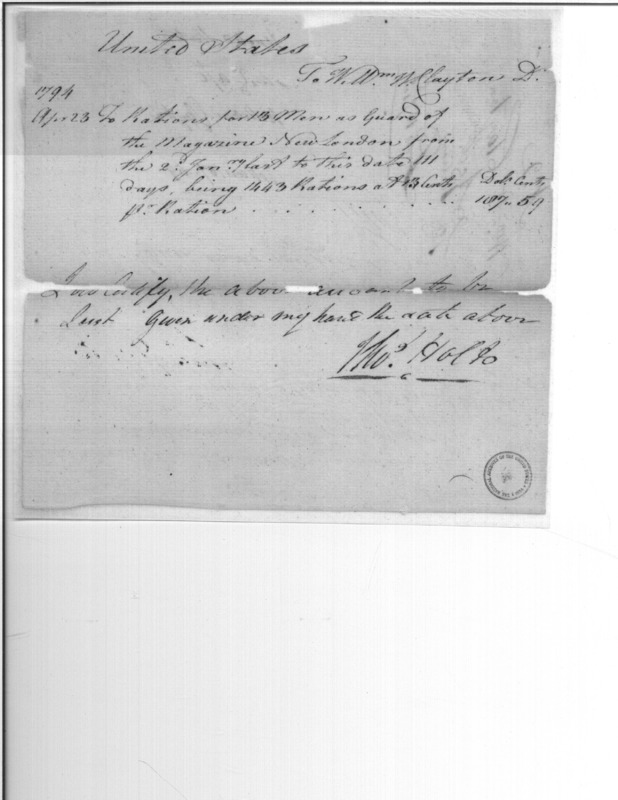 United States
To Wm. W. Clayton Dr.
1794
Apr 23 To Rations for 13 Men as Guard of
the Magazine New London from
the 2d. Jany last to this date 111
days, being 1443 Rations at 13 Cents Dols. Cents
pr. Ration . . . . . . . . . . . 187 " 59
I do Certify, the above amount to be
Just Given under my hand the date above
Thos. Holt